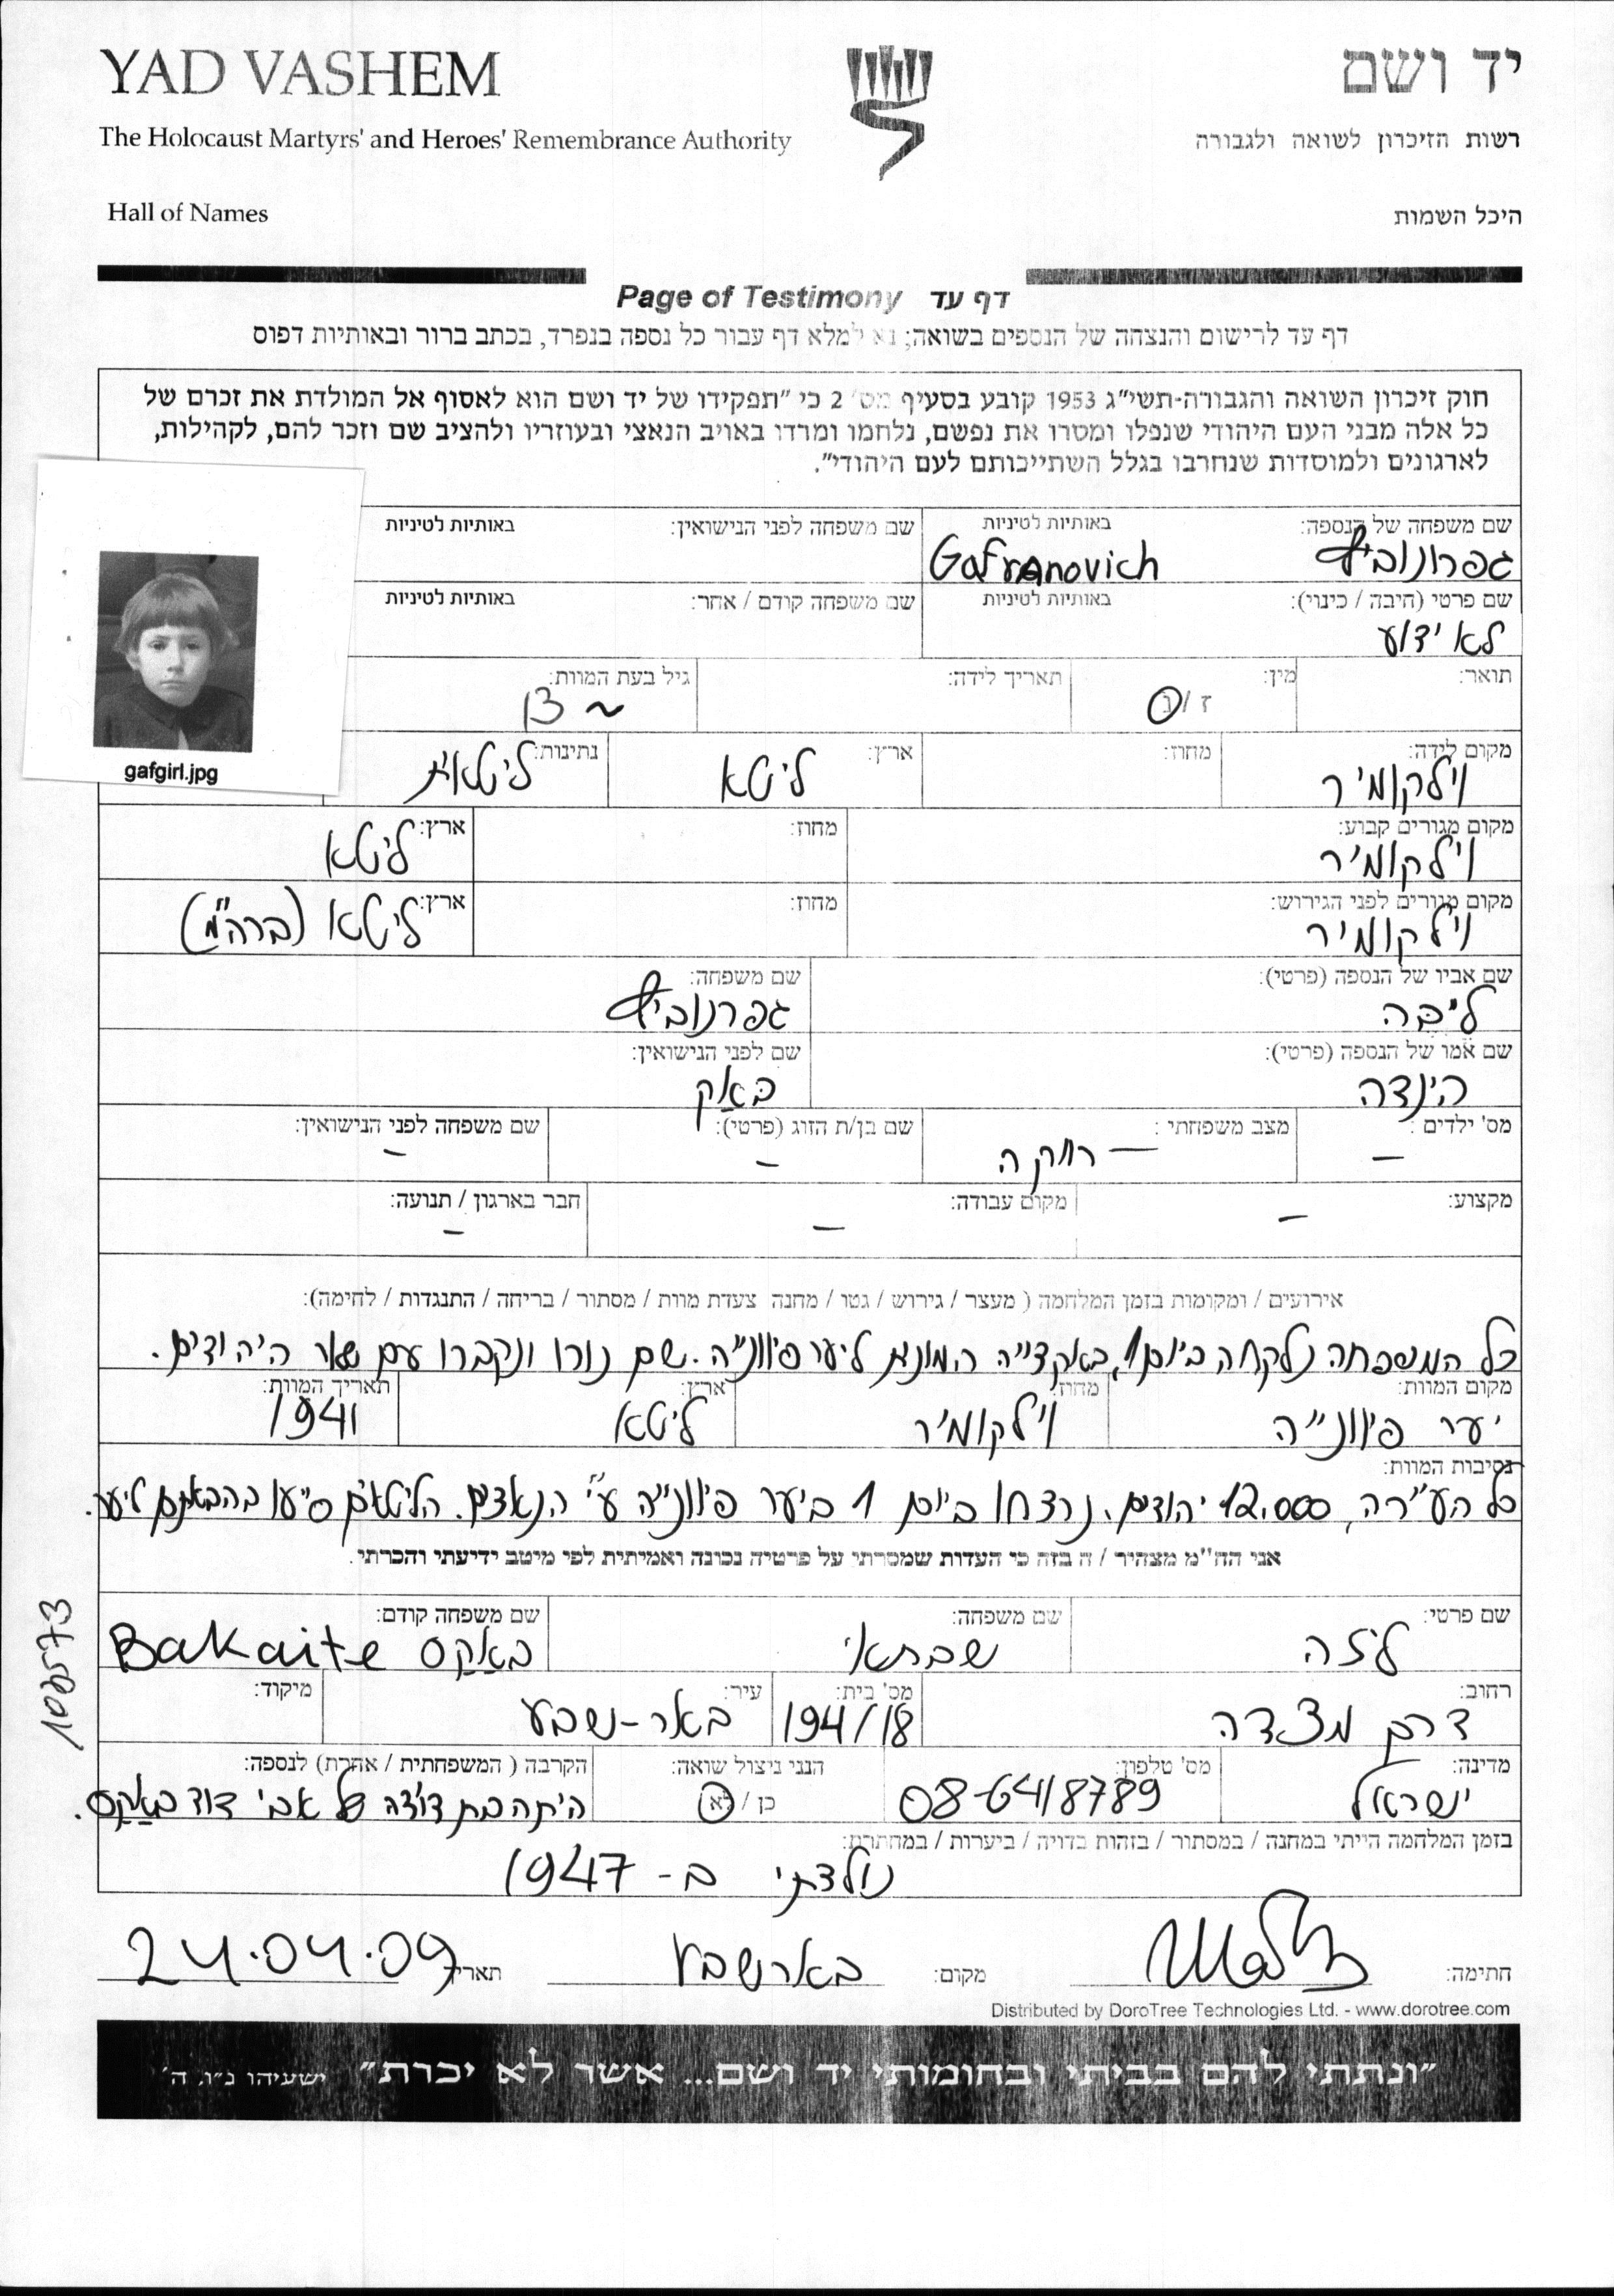 YAD VASHEM
יד ושם
The Holocaust Martyrs' and Heroes' Remembrance Authority
רשות הזיכרון לשואה ולגבורה
Hall of Names
היכל השמות
Page of Testimony דף עד
דף עד לרישום והנצחה של הנספים בשואה; נא למלא דף עבור כל נספה בנפרד, בכתב ברור ובאותיות דפוס
חוק זיכרון השואה והגבורה-תשי"ג 1953 קובע בסעיף מס' 2 כי "תפקידו של יד ושם הוא לאסוף אל המולדת את זכרם של
כל אלה מבני העם היהודי שנפלו ומסרו את נפשם, נלחמו ומרדו באויב הנאצי ובעוזריו ולהציב שם וזכר להם, לקהילות,
לארגונים ולמוסדות שנחרבו בגלל השתייכותם לעם היהודי".
gafgirl.jpg
שם משפחה של הנספה: באותיות לטיניות שם משפחה לפני הנישואין: באותיות לטיניות
גפרונוביץ Gafranovich
שם פרטי (חיבה / כינוי): באותיות לטיניות שם משפחה קודם / אחר: באותיות לטיניות
לא ידוע
תואר: מין: תאריך לידה: גיל בעת המוות:
ז / נ ~ 13
מקום לידה: מחוז: ארץ: נתינות:
וילקומיר ליטא ליטאית
מקום מגורים קבוע: מחוז: ארץ:
וילקומיר ליטא
מקום מגורים לפני הגירוש: מחוז: ארץ:
וילקומיר ליטא (ברה"מ)
שם אביו של הנספה (פרטי): שם משפחה:
ליבה גפרנוביץ
שם אמו של הנספה (פרטי): שם לפני הנישואין:
הינדה באק
מס' ילדים : מצב משפחתי : שם בן/ת הזוג (פרטי): שם משפחה לפני הנישואין:
– – רווקה – –
מקצוע: מקום עבודה: חבר בארגון / תנועה:
– – –
אירועים / ומקומות בזמן המלחמה ( מעצר / גירוש / גטו / מחנה צעדת מוות / מסתור / בריחה / התנגדות / לחימה):
כל המשפחה נלקחה ביום 1, באקצייה המונית ליער פיווניה. שם נורו ונקברו עם שאר היהודים.
מקום המוות: מחוז: ארץ: תאריך המוות:
יער פיוונייה וילקומיר ליטא 1941
נסיבות המוות:
כל העיירה, 12.000 יהודים. נרצחו ביום 1 ביער פיווניה ע"י הנאצים. הליטאים סייעו בהבאתם ליער.
אני הח"מ מצהיר / ה בזה כי העדות שמסרתי על פרטיה נכונה ואמיתית לפי מיטב ידיעתי והכרתי.
שם פרטי: שם משפחה: שם משפחה קודם:
ליזה שבתאי באקס Bakaite
רחוב: מס' בית: עיר: מיקוד:
דרך מצדה 194/18 באר-שבע
מדינה: מס' טלפון: הנני ניצול שואה: הקרבה ( המשפחתית / אחרת) לנספה:
ישראל 08-6418789 כן / לא היתה בת דודה של אבי דוד באקס.
בזמן המלחמה הייתי במחנה / במסתור / בזהות בדויה / ביערות / במחתרת:
נולדתי ב- 1947
חתימה: מקום: באר שבע תאריך 24.04.09
Distributed by DoroTree Technologies Ltd. - www.dorotree.com
"ונתתי להם בביתי ובחומותי יד ושם... אשר לא יכרת" ישעיהו נ"ו, ה'